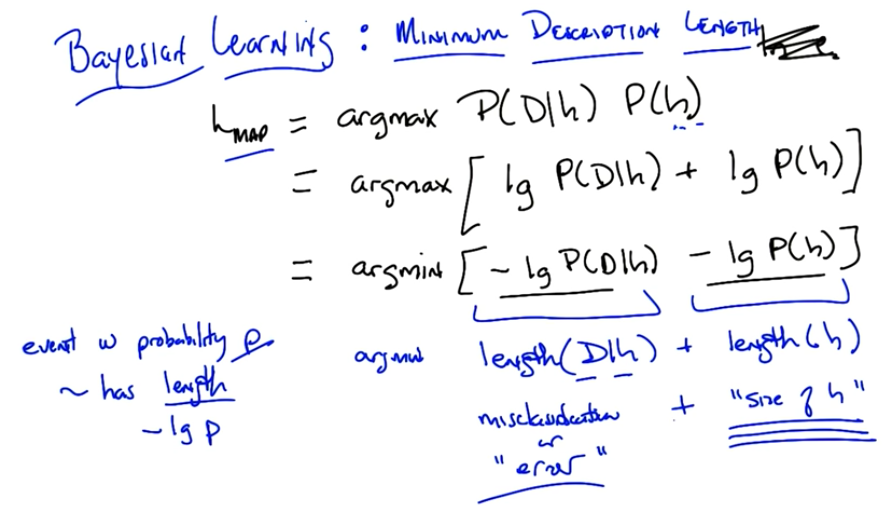 Bayesian Learning : MINIMUM DESCRIPTION LENGTH
h_MAP = argmax P(D|h) P(h)
= argmax [ lg P(D|h) + lg P(h) ]
= argmin [ - lg P(D|h) - lg P(h) ]
event w probability p
~ has length
- lg p
argmin length(D|h) + length(h)
misclassification + "size of h"
or
"error"